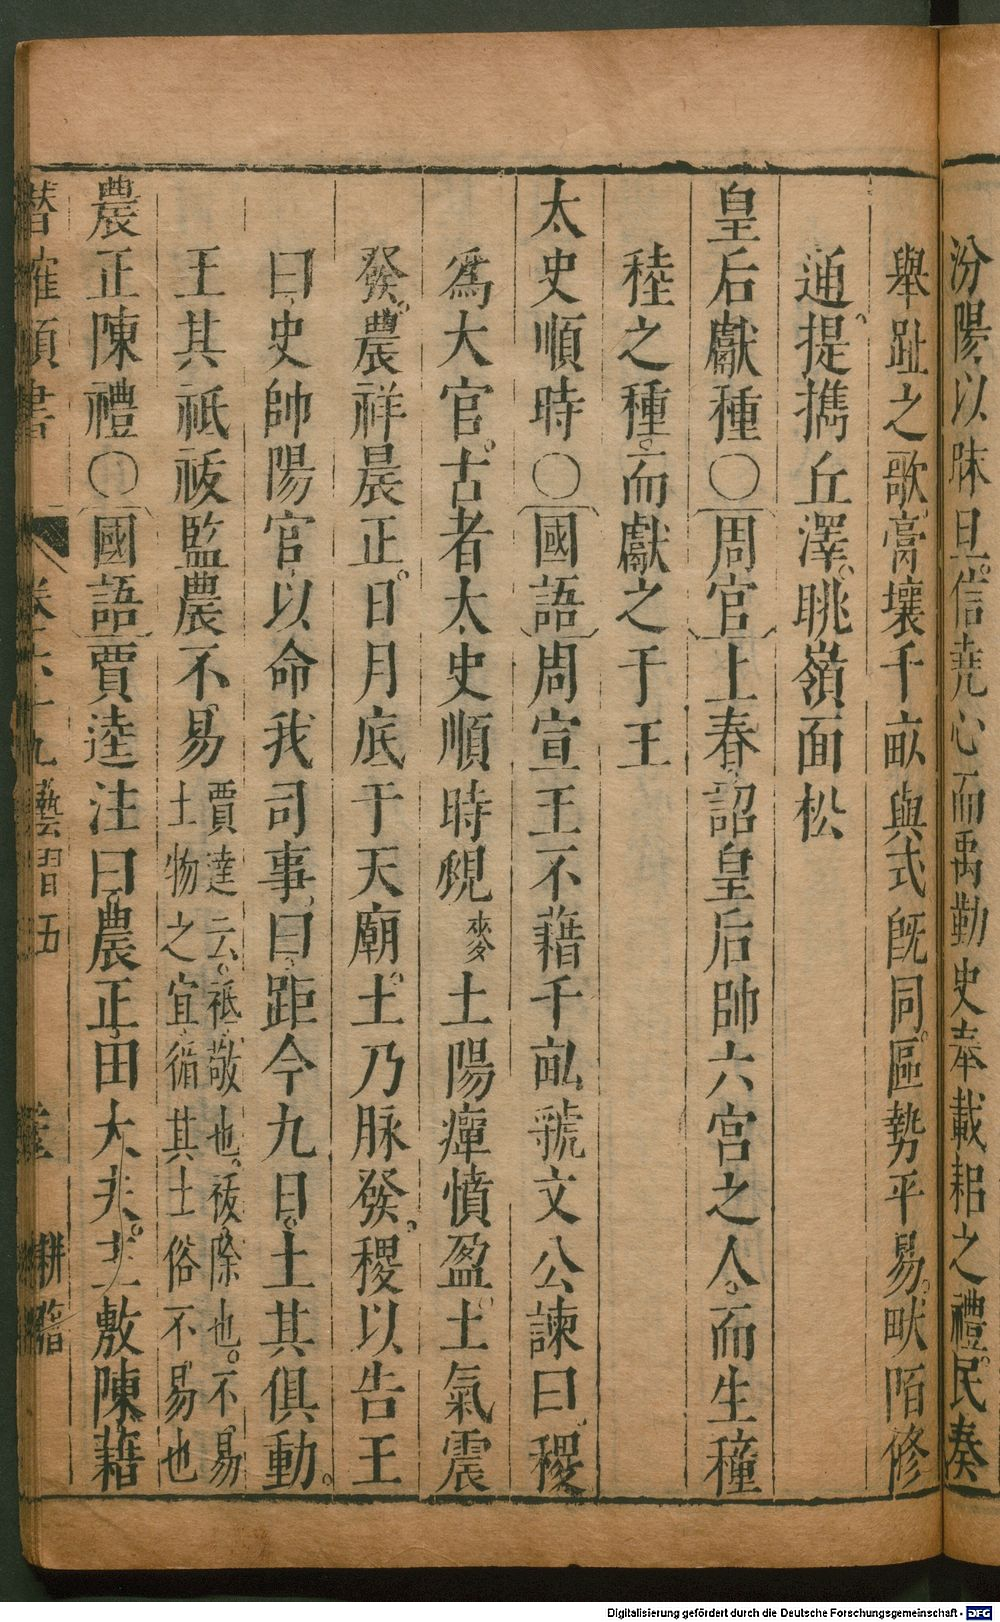 汾陽以眜旦信堯心而禹勤史奉載耜之禮民奏
舉趾之歌膏壤千畝與式既同區勢平易畎陌修
通提擕丘澤眺嶺面松
皇后獻種○周官上春詔皇后帥六宮之人而生穜
稑之種而獻之于王
太史順時○國語周宣王不藉千畝虢文公諫曰稷
爲大官古者太史順時覛麥土陽癉憤盈土氣震
發農祥晨正日月底于天廟土乃脉發稷以告王
曰史帥陽官以命我司事曰距今九日土其俱動
王其祇祓監農不易賈逵云祗敬也祓除也不易
土物之宜循其土俗不易也
農正陳禮○國語賈逵注曰農正田大夫主敷陳藉
潛確類書 卷六十九藝習五 耕籍
Digitalisierung gefördert durch die Deutsche Forschungsgemeinschaft - DFG